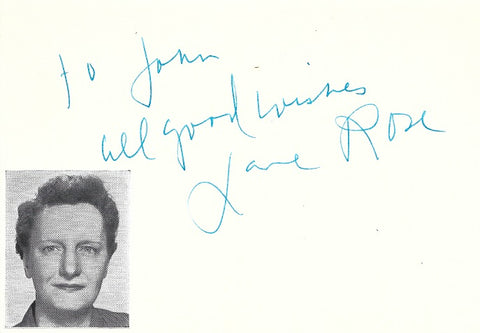 to John
all good wishes
Jane Rose